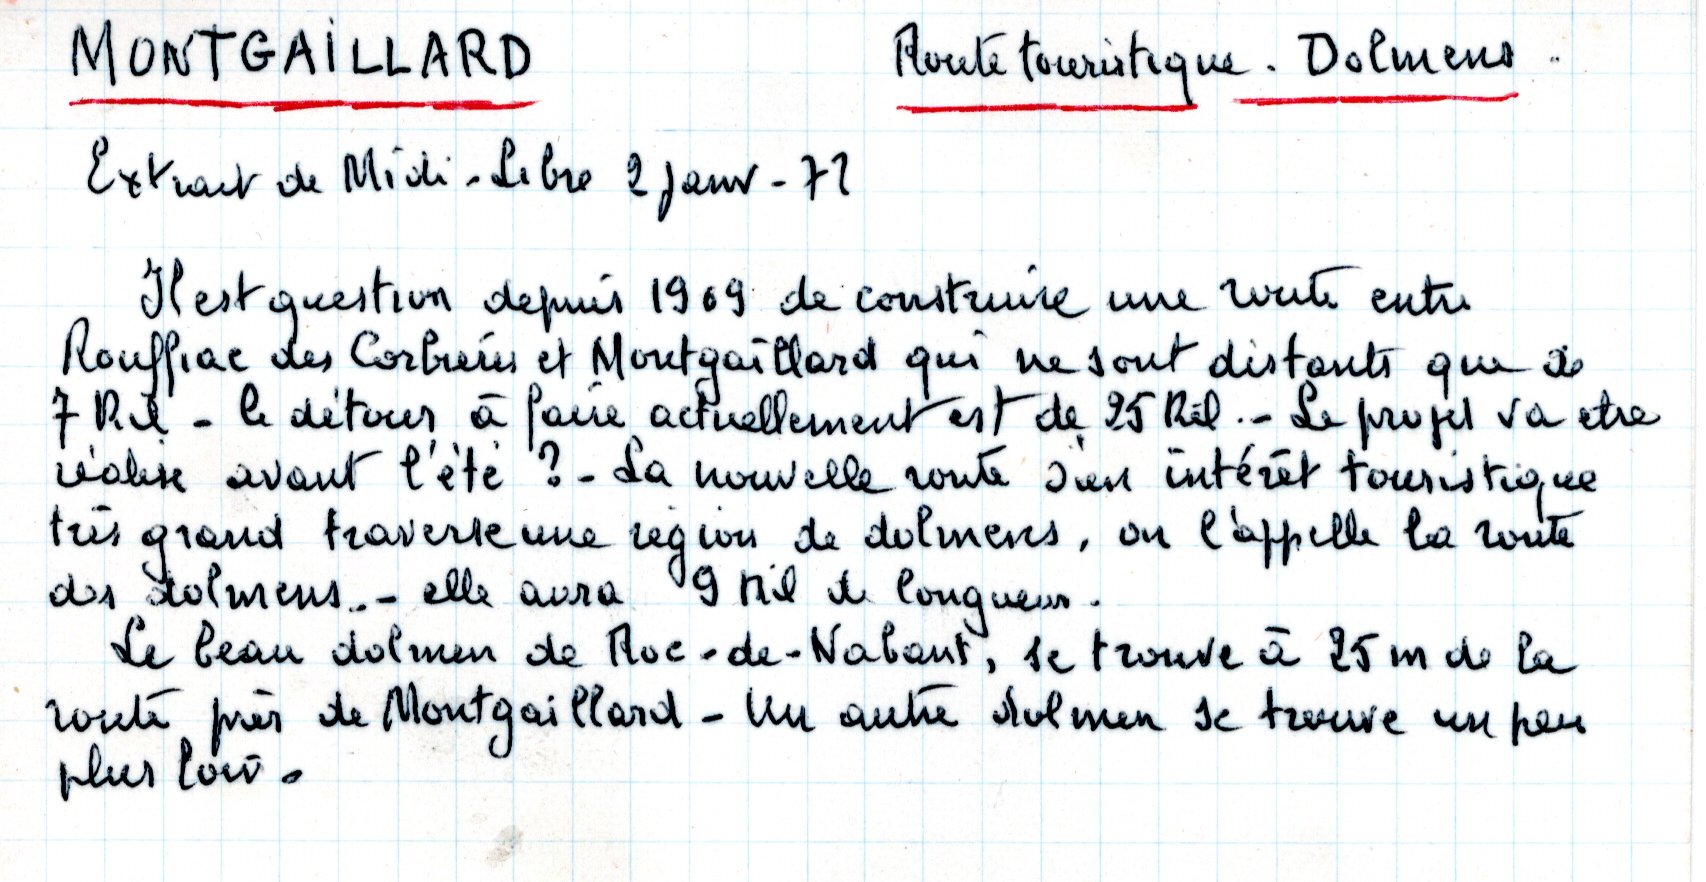 MONTGAILLARD Route touristique. Dolmens.
Extrait de Midi-Libre 2 janv-72
Il est question depuis 1969 de construire une route entre
Rouffiac des Corbières et Montgaillard qui ne sont distants que de
7 Kil - le détour à faire actuellement est de 25 Kil. - Le projet va etre
réalisé avant l'été ? - La nouvelle route d'un intérêt touristique
très grand traverse une région de dolmens, on l'appelle la route
des dolmens.. - elle aura 9 Kil de longueur.
Le beau dolmen de Roc-de-Nabant, se trouve à 25 m de la
route près de Montgaillard - Un autre dolmen se trouve un peu
plus loin.